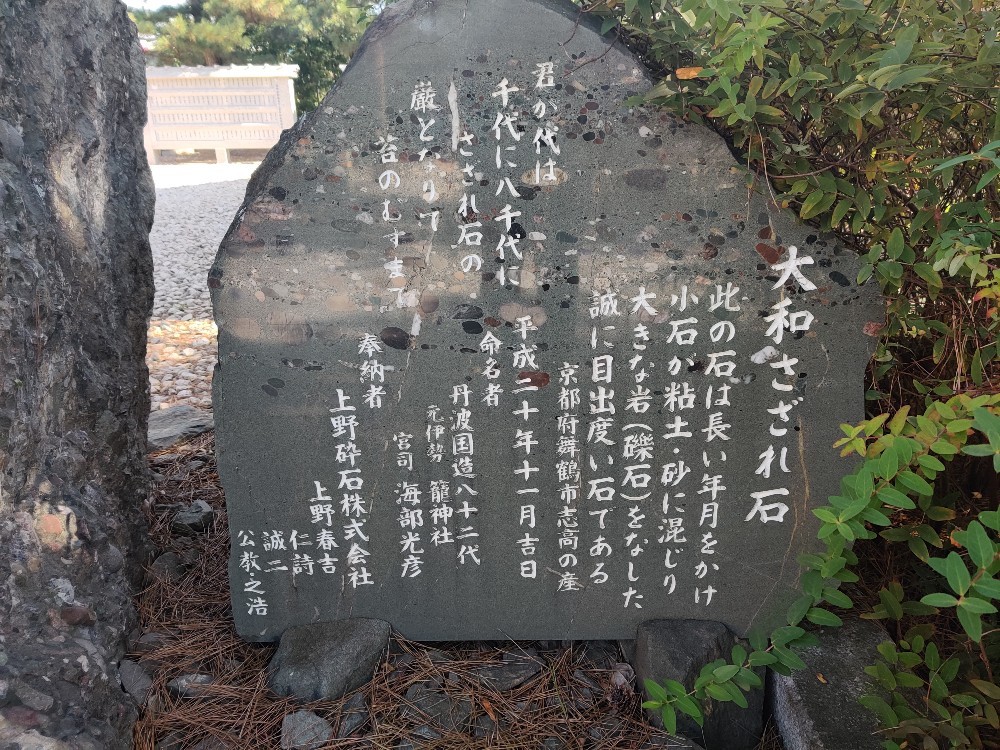 大和さざれ石
此の石は長い年月をかけ
小石が粘土・砂に混じり
大きな岩(礫石)をなした
誠に目出度い石である
京都府舞鶴市志高の産
君が代は
千代に八千代に
さざれ石の
厳となりて
苔のむすまで
平成二十年十一月吉日
命名者
丹波国造八十二代
元伊勢 籠神社
宮司 海部光彦
奉納者
上野砕石株式会社
上野春吉
仁詩
誠二
公教之浩